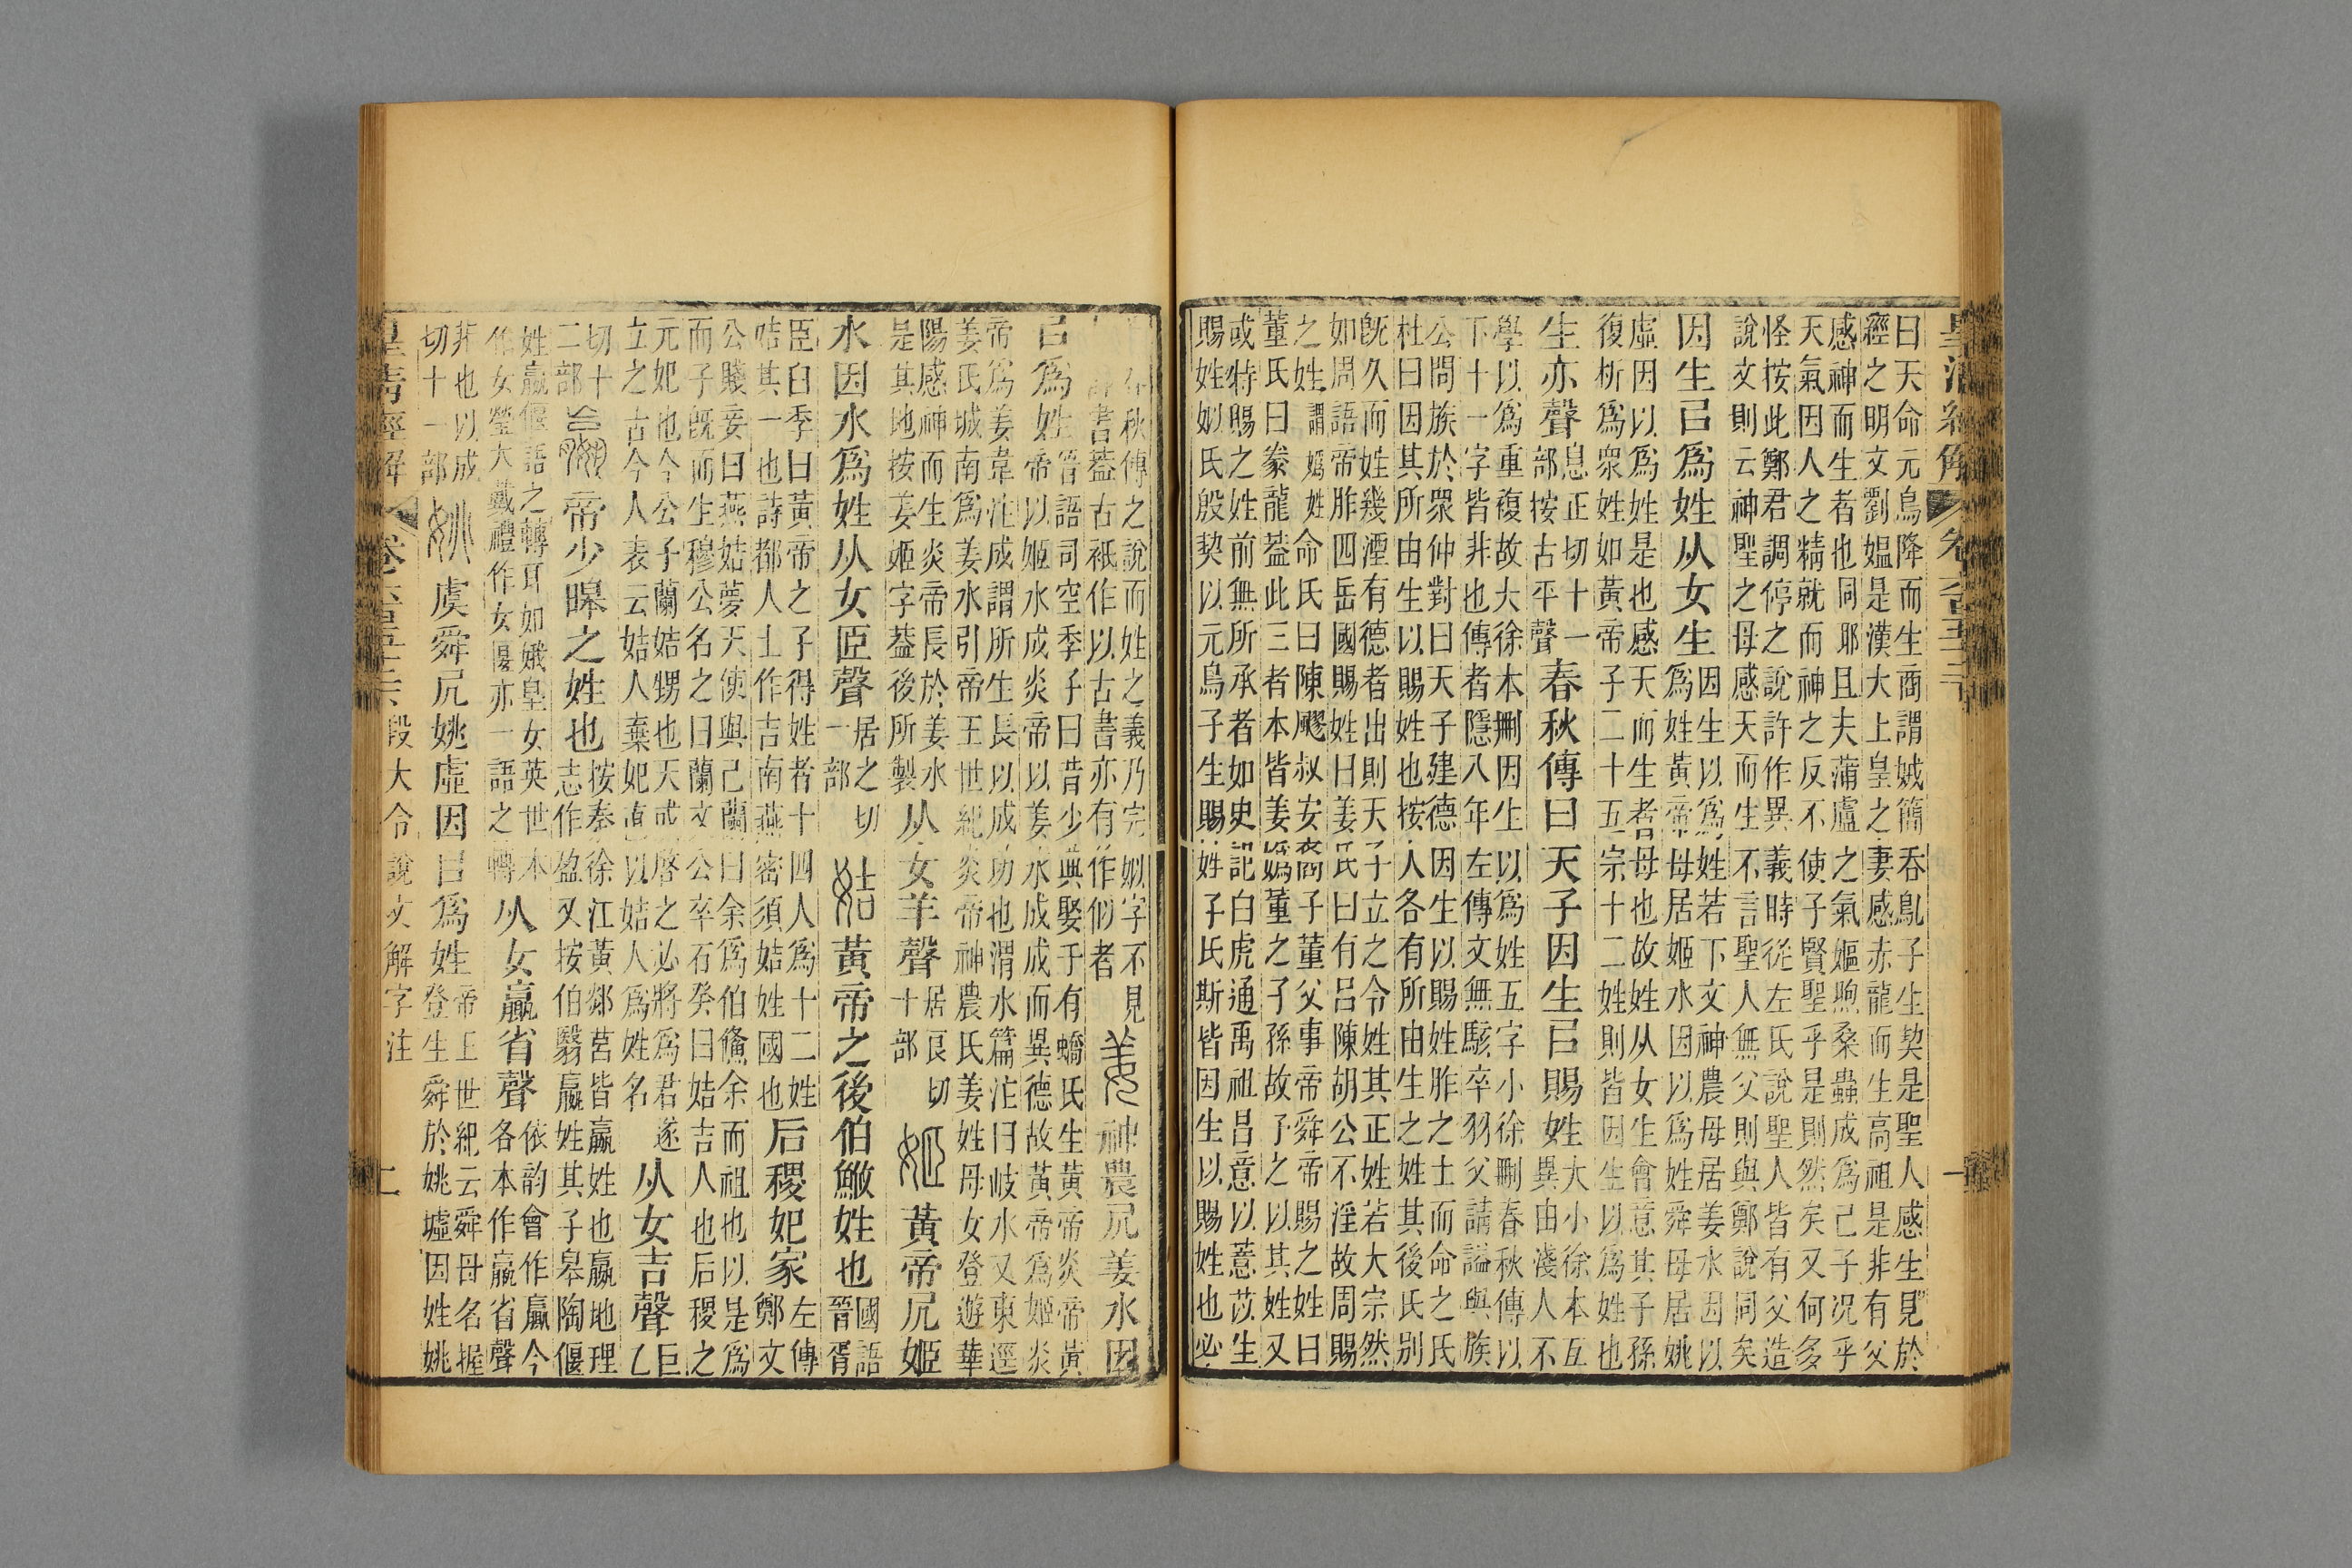 曰天命元鳥降而生商謂娀簡吞鳦子生契是聖人感生見於
經之明文劉媼是漢大上皇之妻感赤龍而生高祖是非有父
感神而生者也同耶且夫蒲盧之氣嫗煦桑蟲成爲己子况乎
天氣因人之精就而神之反不使子賢聖乎是則然矣又何多
怪按此鄭君調停之說許作異義時從左氏說聖人皆有父造
說文則云神聖之母感天而生不言聖人無父則與鄭說同矣
因生㠯爲姓从女生因生以爲姓若下文神農母居姜水因以爲姓黃帝母居姬水因以爲姓舜母居姚
虛因以爲姓是也感天而生者母也故姓从女生會意其子孫
復析爲衆姓如黃帝子二十五宗十二姓則皆因生以爲姓也
生亦聲息正切十一部按古平聲春秋傳曰天子因生㠯賜姓大小徐本互異由淺人不
學以爲重複故大徐本刪因生以爲姓五字小徐刪春秋傳以
下十一字皆非也傳者隱八年左傳文無駭卒羽父請謚與族
公問族於眾仲對曰天子建德因生以賜姓胙之土而命之氏
杜曰因其所由生以賜姓也按人各有所由生之姓其後氏別
旣久而姓幾湮有德者出則天子立之令姓其正姓若大宗然
如周語帝胙四岳國賜姓曰姜氏曰有呂陳胡公不淫故周賜
之姓謂嬀姓命氏曰陳飂叔安裔子董父事帝舜帝賜之姓曰
董氏曰豢龍葢此三者本皆姜嬀董之子孫故予之以其姓又
或特賜之姓前無所承者如史記白虎通禹祖昌意以薏苡生
賜姓姒氏殷契以元鳥子生賜姓子氏斯皆因生以賜姓也必
春秋傳之說而姓之義乃完姒字不見許書葢古衹作以古書亦有作似者姜神農凥姜水因
㠯爲姓晉語司空季子曰昔少典娶于有蟜氏生黃帝炎帝黃帝以姬水成炎帝以姜水成成而異德故黃帝爲姬炎
帝爲姜韋注成謂所生長以成功也渭水篇注曰岐水又東逕
姜氏城南爲姜水引帝王世紀炎帝神農氏姜姓母女登遊華
陽感神而生炎帝長於姜水是其地按姜姬字葢後所製从女羊聲居良切十部姬黃帝凥姬
水因水爲姓从女𦣞聲居之切一部姞黃帝之後伯鯈姓也國語晉胥
臣臼季曰黃帝之子得姓者十四人爲十二姓姞其一也詩都人士作吉南燕密須姞姓國也后稷妃家左傳鄭文
公賤妾曰燕姞夢天使與己蘭曰余爲伯鯈余而祖也以是爲
而子旣而生穆公名之曰蘭文公卒石癸曰姞吉人也后稷之
元妃也今公子蘭姞甥也天或啓之必將爲君遂立之古今人表云姞人棄妃直以姞人爲姓名从女吉聲巨乙
切十二部嬴帝少暤之姓也按秦徐江黃郯莒皆嬴姓也嬴地理志作盈又按伯翳嬴姓其子皋陶偃
姓嬴偃語之轉耳如娥皇女英世本作女瑩大戴禮作女匽亦一語之轉从女嬴省聲依韵會作嬴今各本作嬴省聲
非也以成切十一部姚虞舜凥姚虛因㠯爲姓帝王世紀云舜母名握登生舜於姚墟因姓姚
皇清經解 段大令說文解字注 二